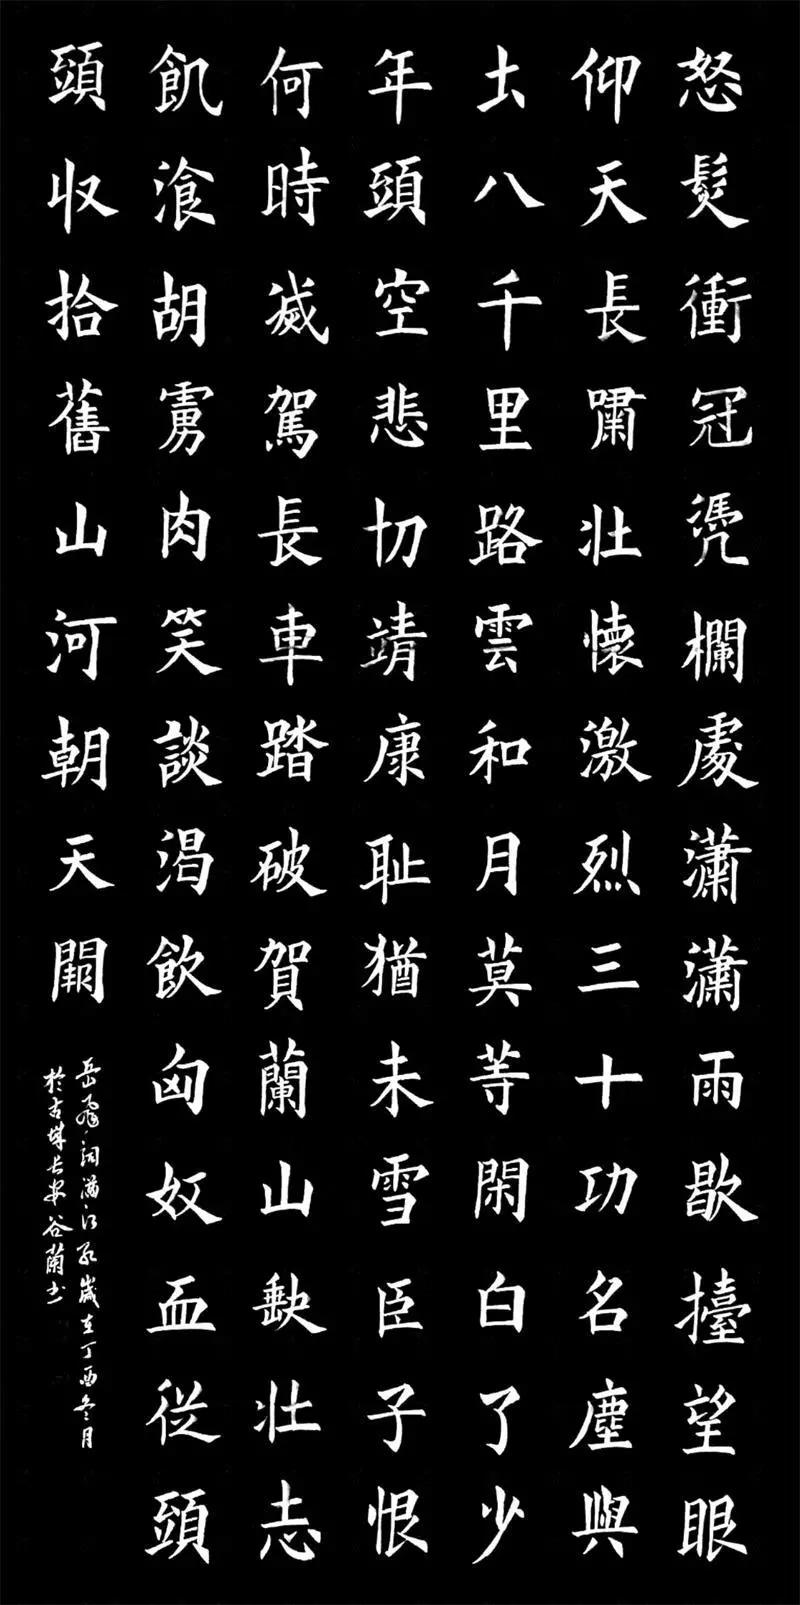 怒髮衝冠憑欄處瀟瀟雨歇擡望眼
仰天長嘯壯懷激烈三十功名塵與
土八千里路雲和月莫等閑白了少
年頭空悲切靖康耻猶未雪臣子恨
何時滅駕長車踏破賀蘭山缺壯志
飢湌胡虜肉笑談渴飲匈奴血從頭
頭收拾舊山河朝天闕
岳飛词滿江紅歲在丁酉冬月
於古城长安谷蘭书